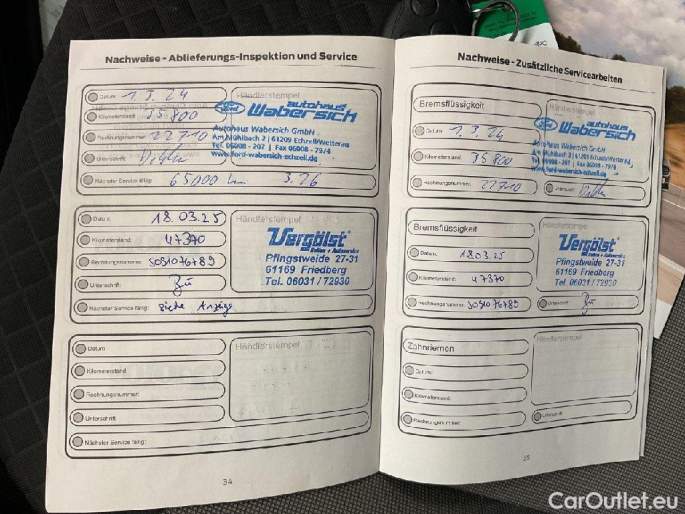 Nachweise - Ablieferungs-Inspektion und Service
Datum: 1.3.24
Kilometerstand: 35.800
Rechnungsnummer: 22710
Unterschrift:
Nächster Service fällig: 65000 km 3.26
Händlerstempel
Ford autohaus
Wabersich
Autohaus Wabersich GmbH
Am Mühlbach 2 | 61209 Echzell/Wetterau
Tel. 06008 - 207 | Fax 06008 - 79/4
www.ford-wabersich-echzell.de
Datum: 18.03.25
Kilometerstand: 47370
Rechnungsnummer: 5031076789
Unterschrift:
Nächster Service fällig: siehe Anzeige
Händlerstempel
Vergölst
Reifen + Autoservice
Pfingstweide 27-31
61169 Friedberg
Tel. 06031 / 72930
Datum:
Kilometerstand:
Rechnungsnummer:
Unterschrift:
Nächster Service fällig:
Händlerstempel
34
Nachweise - Zusätzliche Servicearbeiten
Bremsflüssigkeit
Datum: 1.3.24
Kilometerstand: 35800
Rechnungsnummer: 22710
Händlerstempel
Ford autohaus
Wabersich
Autohaus Wabersich GmbH
Am Mühlbach 2 | 61209 Echzell/Wetterau
Tel. 06008 - 207 | Fax 06008 - 79/4
Unterschrift:
Bremsflüssigkeit
Datum: 18.03.25
Kilometerstand: 47370
Rechnungsnummer: 5031076789
Händlerstempel
Vergölst
Reifen + Autoservice
Pfingstweide 27-31
61169 Friedberg
Tel. 06031 / 72930
Unterschrift:
Zahnriemen
Datum:
Kilometerstand:
Rechnungsnummer:
Händlerstempel
Unterschrift:
35
CarOutlet.eu